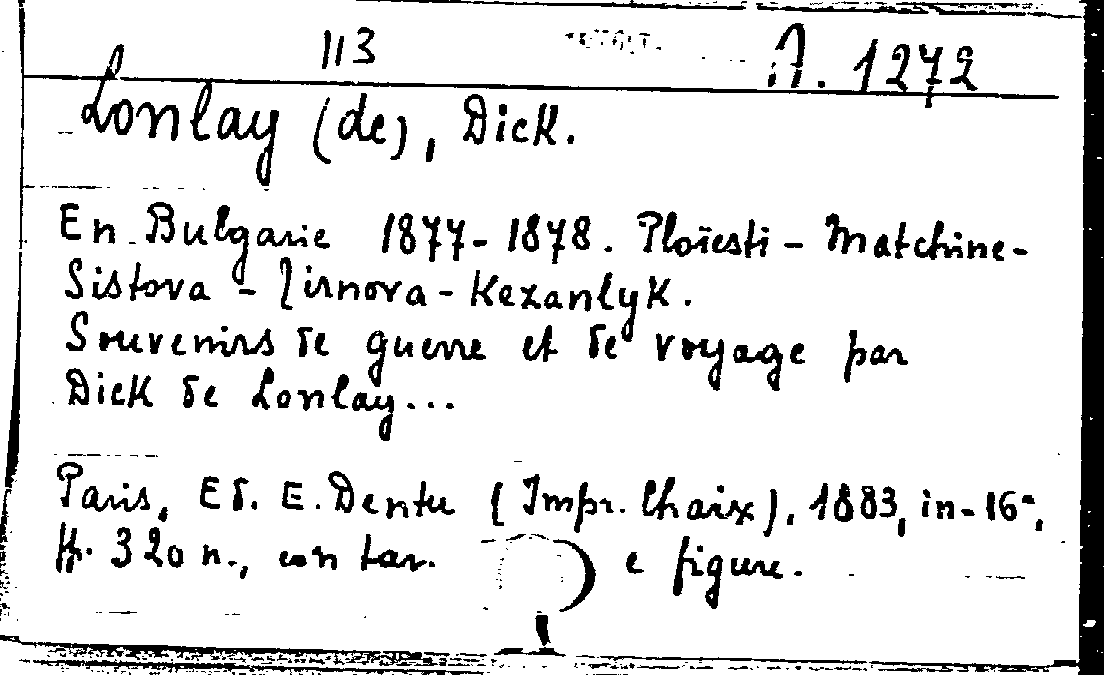 113 A. 1272
Lonlay (de), Dick.
En Bulgarie 1877-1878. Ploïesti - Matchine-
Sistova - Tirnova - Kezanlyk.
Souvenirs de guerre et de voyage par
Dick de Lonlay...
Paris, Ed. E. Dentu (Impr. Chaix), 1883, in-16°,
pp. 320 n., con tav. e figure.